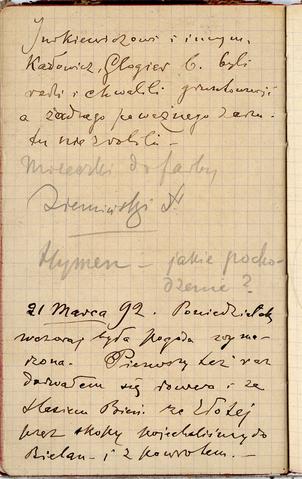 Jurkiewiczowi i innym.
Kadowicz, Glogier C. byli
radi i chwalili gruntowność
a żadnego poważnego zarzu-
tu nie zrobili –
do farby
Ziemiński F.
Hymen – jakie pocho-
dzenie?
21 Marca 92. Poniedziałek
wczoraj była pogoda wyma-
rzona. Pierwszy też raz
dosiadłem się roweru i ze
Stasiem ze Złotej
przez pojechaliśmy do
Bielan – i z powrotem. –